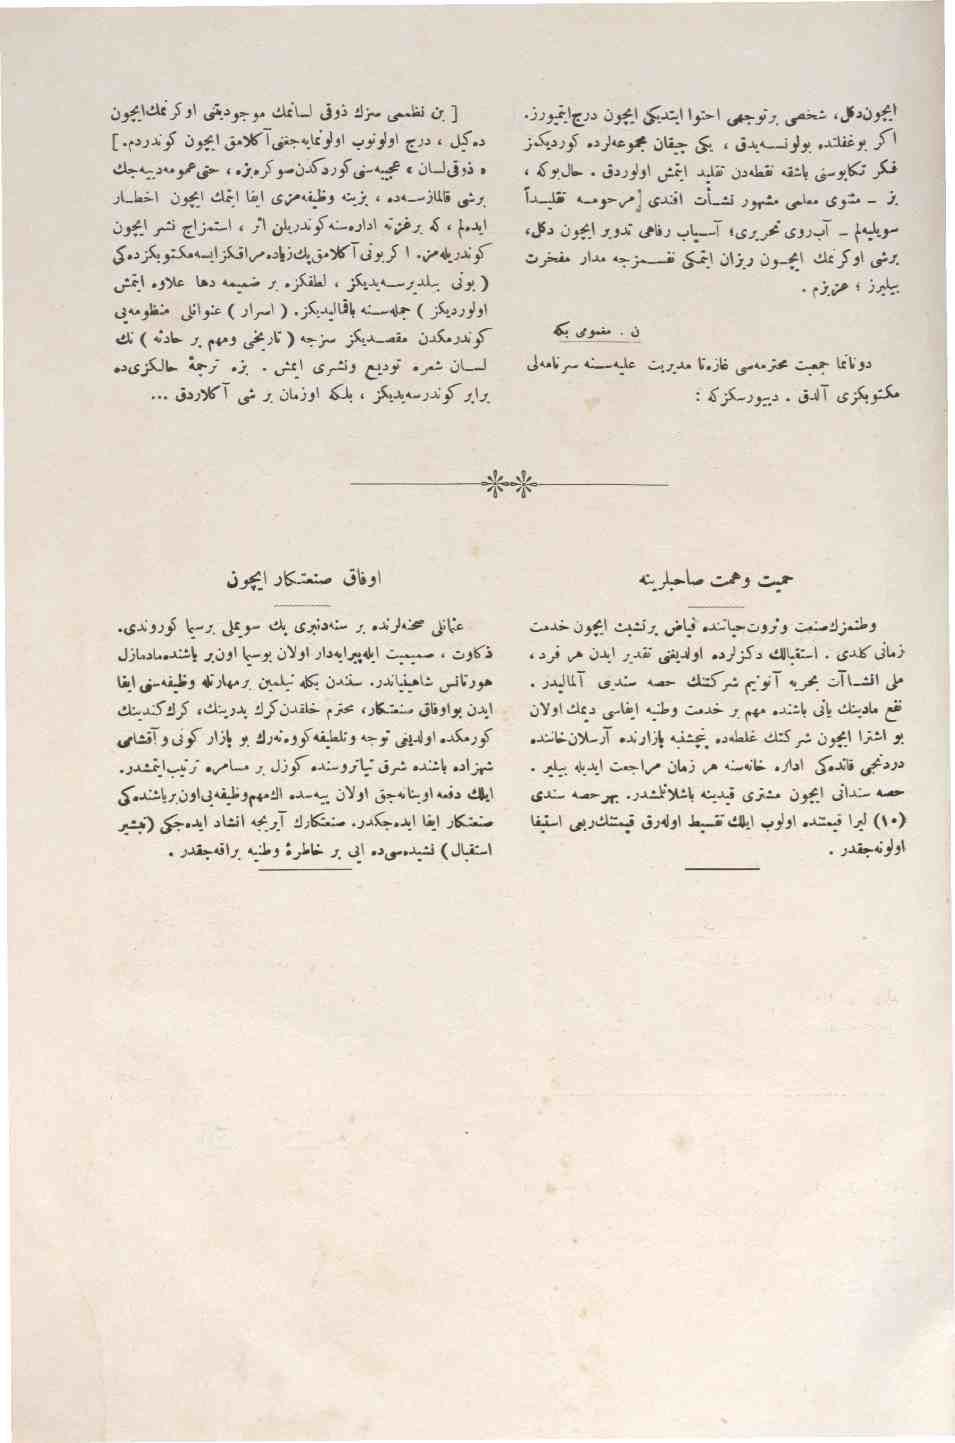 ایچون دكل، شخصی بر توجهی احتوا ایتدیكی ایچون درج ایتمیورز.
اكر بو غفلتده بولونسه‌یدق ، یكی چیقان مجموعه‌لرده كوردیكمز
فكر تكاپوسنی باشقه نقطه‌دن تقلید ایتمش اولوردق . حال بوكه ،
بز - مثنوی معلمی مشهور نشأت افندی مرحومه تقلیداً
سویلیه‌لم - آب روی تحریری؛ آسیاب رفاهی تدویر ایچون دكل،
برشی اوكرنمك ایچون ریزان ایتمكی نفسمزجه مدار مفخرت
بیلیرز ؛ عزیزم .
ن . مغمومی بكه
دونانما جمعیت محترمه‌سی غازه‌تا مدیریت علیه‌سنه سرنامه‌لی
مكتوبكزی آلدق . دییورسكزكه :
[ بن نظمی سزك ذوقی لسانمك موجودیتنی اوكرنمك ایچون
ده‌كیل ، درج اولونوب اولونمایه‌جغنی آكلامق ایچون كوندردم.]
« ذوقی لسان » عجیبه‌سنی كوردكدن صوكره بزه ، حتی عموممه دییه‌جك
برشی قالمازسه‌ده ، بزینه وظیفه‌مزی ایفا ایتمك ایچون اخطار
ایده‌لم ، كه بر غزته اداره‌سنه كوندریلن اثر ، استمزاج نشر ایچون
كوندریله‌مز. اكر بونی آكلامق پك زیاده مراقكز ایسه مكتوبكزده‌كی
( بونی بیلدیرسه‌یدیكز ، لطفكزه بر ضمیمه دها علاوه ایتمش
اولوردیكز ) جمله‌سنه باقمالیدیكز . ( اسرار ) عنوانلی منظومه‌یی
كوندرمكدن مقصدیكز سزجه ( تاریخی ومهم بر حادثه ) نك
لسان شعره تودیع ونشری ایمش . بزه ترجمهٔ حالكزی‌ده
برابر كوندرسه‌یدیكز ، بلكه اوزمان بر شی آكلاردق ...
حمیت وهمت صاحبلرینه
وطنمزك صنعت وثروت حیاتنده فیاض بر تشبث ایچون خدمت
زمانی كلدی . استقبالك دكزلرده اولدیغنی تقدیر ایدن هر فرد ،
ملی انشاآت بحریه آنونیم شركتنك حصه سندی آلمالیدر .
نفع مادینك یانی باشنده مهم بر خدمت وطنیه ایفاسی دیمك اولان
بو اشترا ایچون شركتك غلطه‌ده پنچشنبه پازارنده آرسلان خاننده
دردنجی قاتده‌كی اداره خانه‌سنه هر زمان مراجعت ایدیله بیلیر .
حصه سنداتی ایچون مشتری قیدینه باشلانلمشدر. بهر حصه سندی
(۱۰) لیرا قیمتنده اولوب ایلك تقسیط اوله‌رق قیمتنك ربعی استیفا
اولونه‌جقدر .
اوفاق صنعتكار ایچون
عثمانلی صحنه‌لرنده بر سنه‌دنبری پك سویملی برسیما كوروندی.
ذكاوت ، صمیمیت ایله پیرایه‌دار اولان بوسیما اون بر یاشنده مادمازل
هورتانس شاهیفیاندر. سفندن بكله نیلمین بر مهارتله وظیفه‌سنی ایفا
ایدن بو اوفاق صنعتكار، محترم خلقدن كرك پدرینك، كرك كندینك
كورمكده اولدیغی توجه وتلطیفه كووه‌نه‌رك بو بازار كونی وآقشامی
شهزاده باشنده شرق تیاتروسنده كوزل بر مسامره ترتیب ایتمشدر.
ایلك دفعه اوینانه‌جق اولان پیه‌سده اك مهم وظیفه‌یی اون بر یاشنده‌كی
صنعتكار ایفا ایده‌جكدر. صنعتكارك آیریجه انشاد ایده‌جكی (تبشیر
استقبال ) نشیده‌سی‌ده ایی بر خاطرهٔ وطنیه براقه‌جقدر .